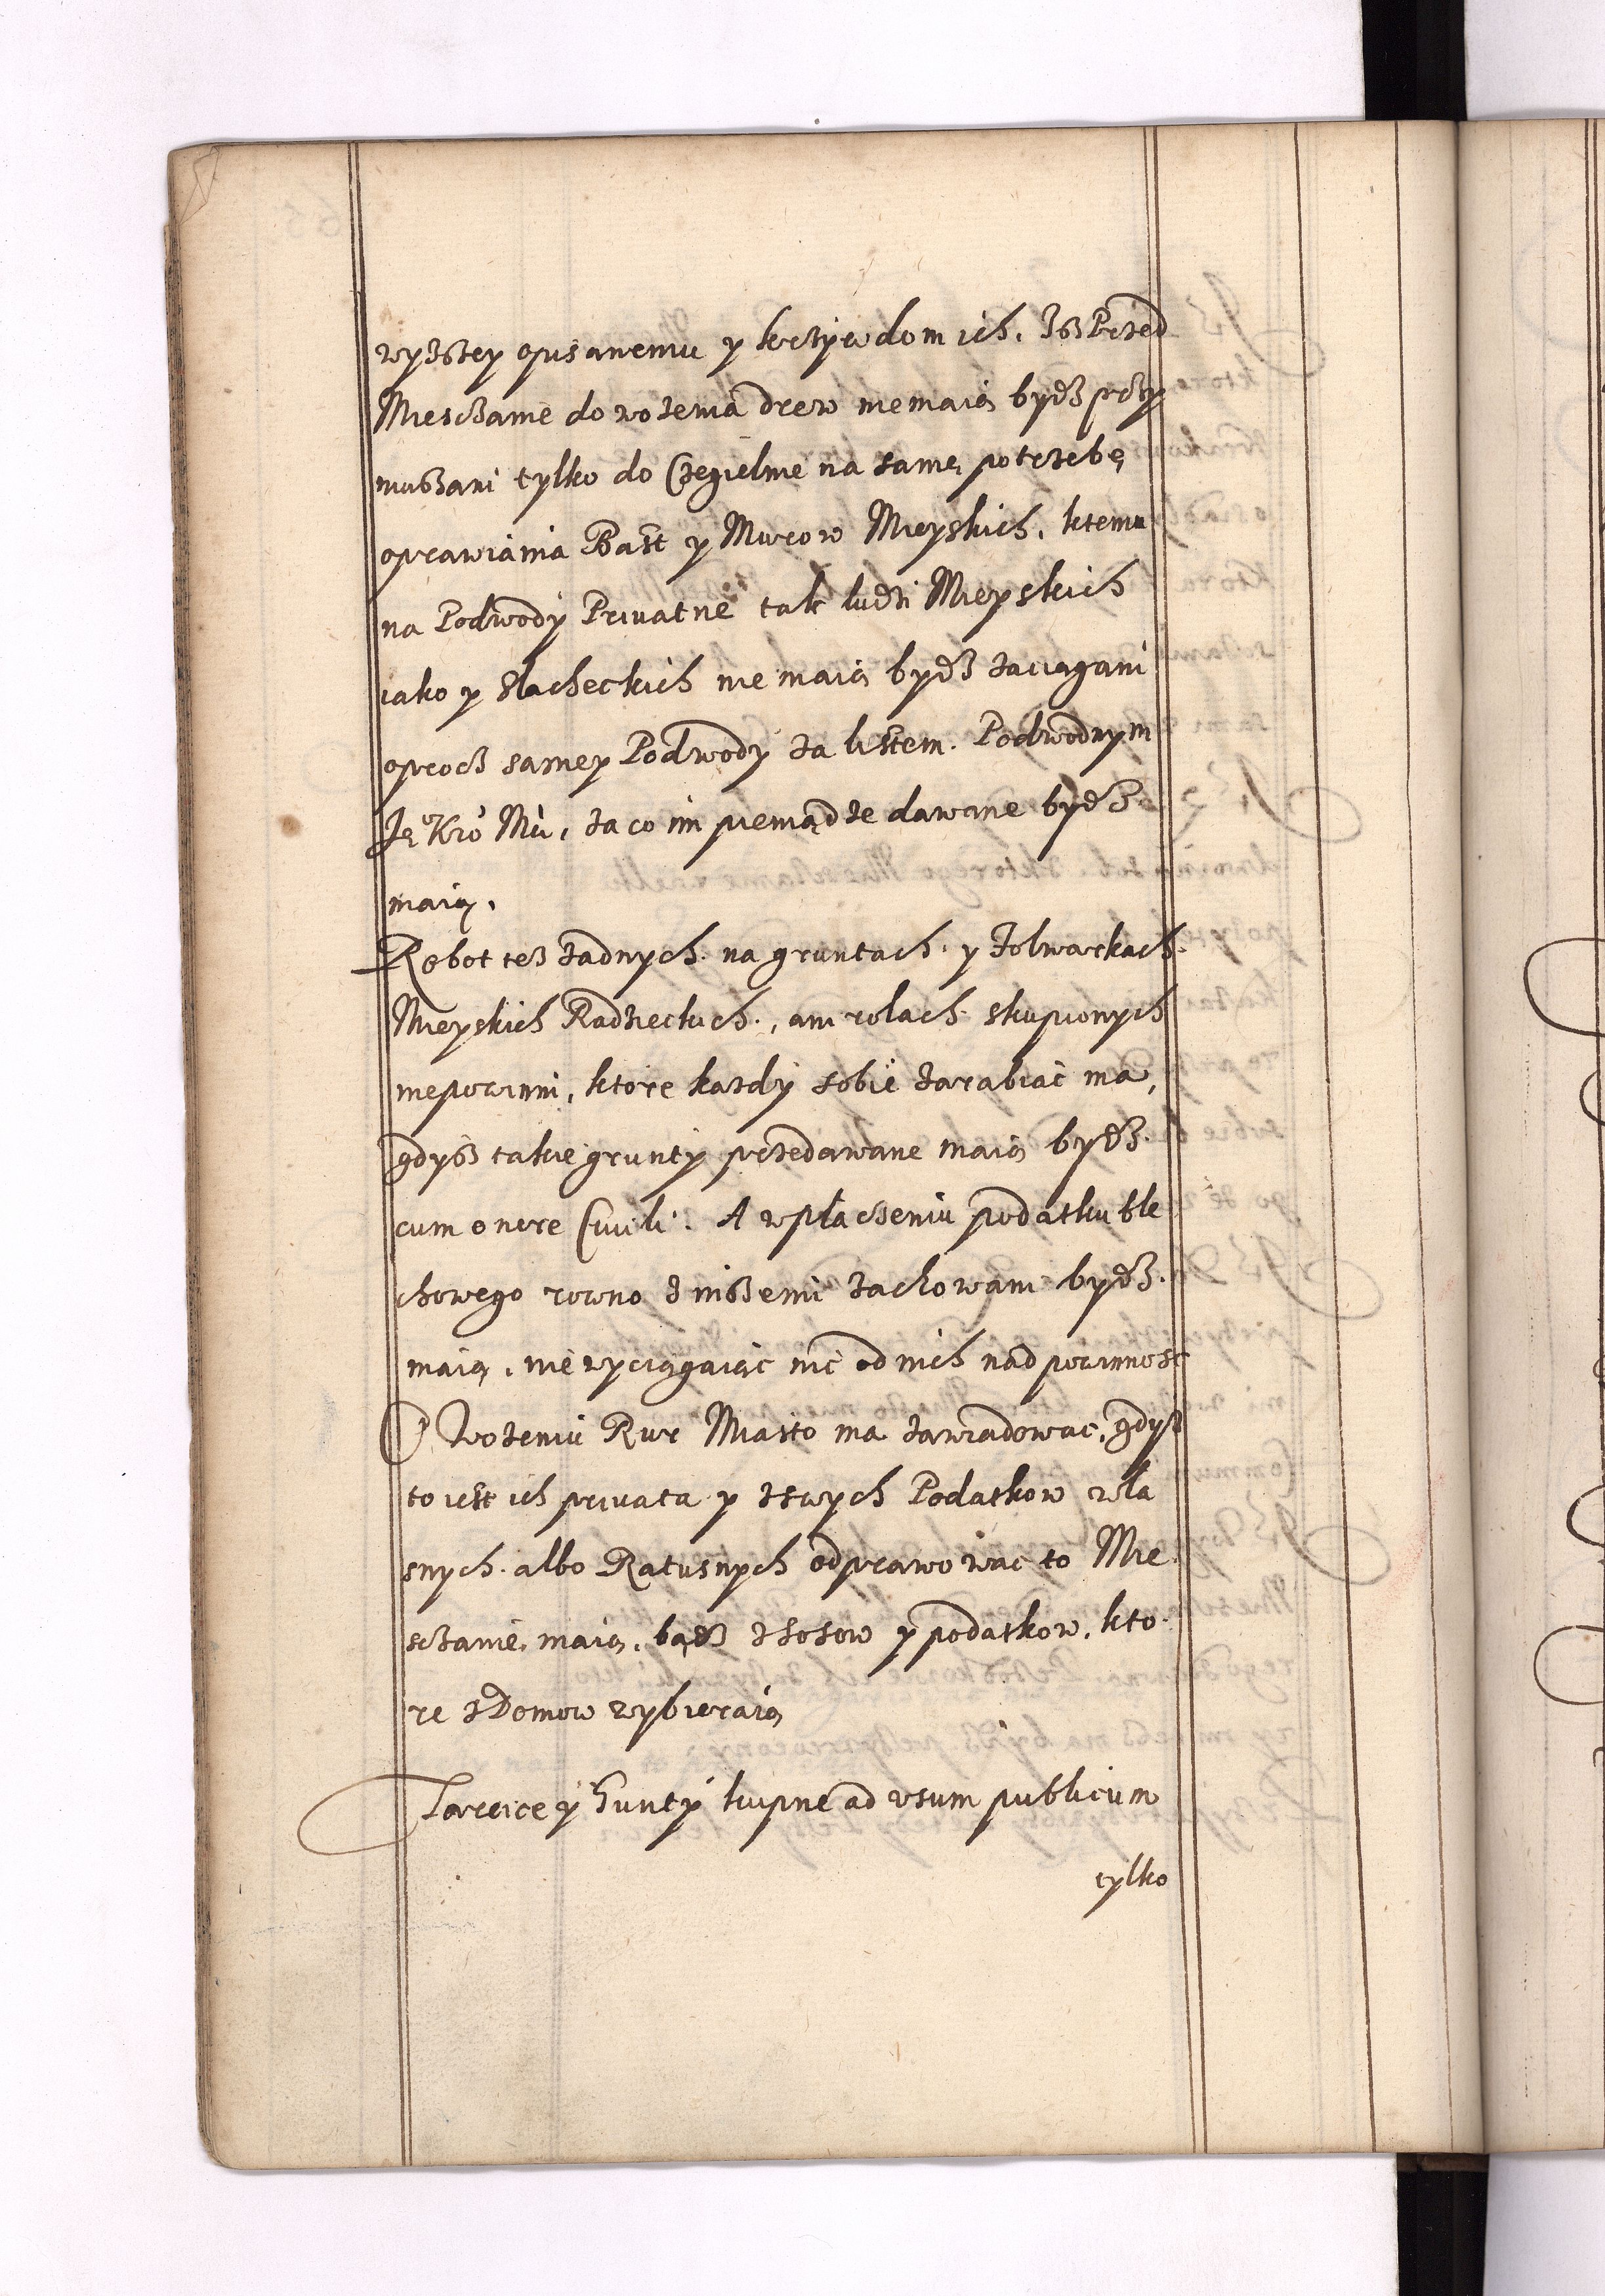 wyższey opisanemu y krzywdom ich. Isz Przed
Miesczanie do wożenia drew niemaią bydz przy
muszani tylko do Czegielnie na samę potrzebę
oprawiania Baszt y Murow Mieyskich. ktemu
na Podwody Priuatne tak ludzi Mieyskich
iako y Slacheckich nie maią bydz zaciagani
oprocz samey Podwody za listem. Podwodnym
Je° Kro Mci, za co im pieniądze dawane bydz
maią.
Robot tesz żadnych na gruntach y Folwarkach
Mieyskich Radzieckich, ani rolach skupionych
niepowinni, ktore każdy sobie zarabiać ma,
gdysz takie grunty przedawane maią bydz
cum onere Ciuili. A wpłaczeniu podatku Ble
chowego rowno z inszemi zachowani bydz
maią, nie wyciągaiąc nic od nich nad powinnosc
O Wożeniu Rur Miasto ma zawiadowac, gdyż
to iest ich priuata y zswych Podatkow wła
snych albo Ratusnych odprawować to Mie
sczanie maią, bądz zSosow y podatkow, kto
re zDomow wybieraią
Tarcice y Gunty kupne ad vsum publicum
tylko